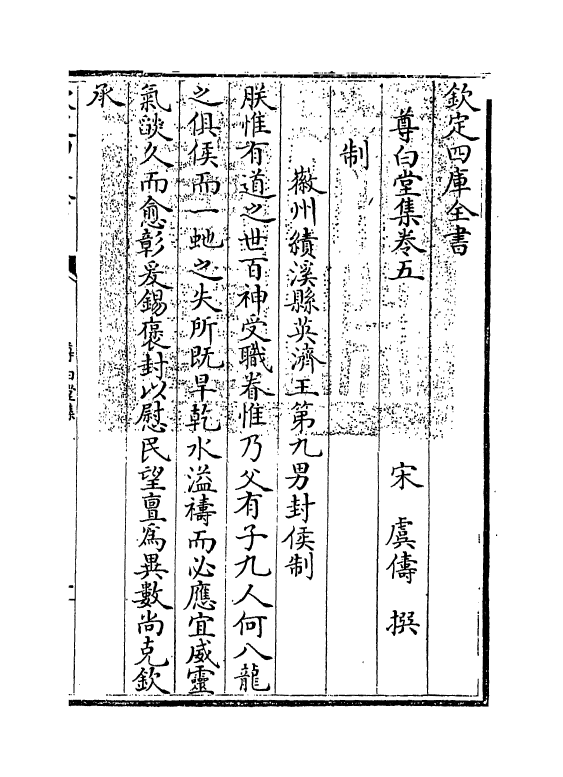 欽定四庫全書
尊白堂集卷五
宋 虞儔 撰
制
徽州績溪縣英濟王第九男封侯制
朕惟有道之世百神受職眷惟乃父有子九人何八龍
之俱侯而一虵之失所既旱乾水溢禱而必應宜威靈
氣燄久而愈彰爰錫褒封以慰民望亶為異數尚克欽
承
尊白堂集